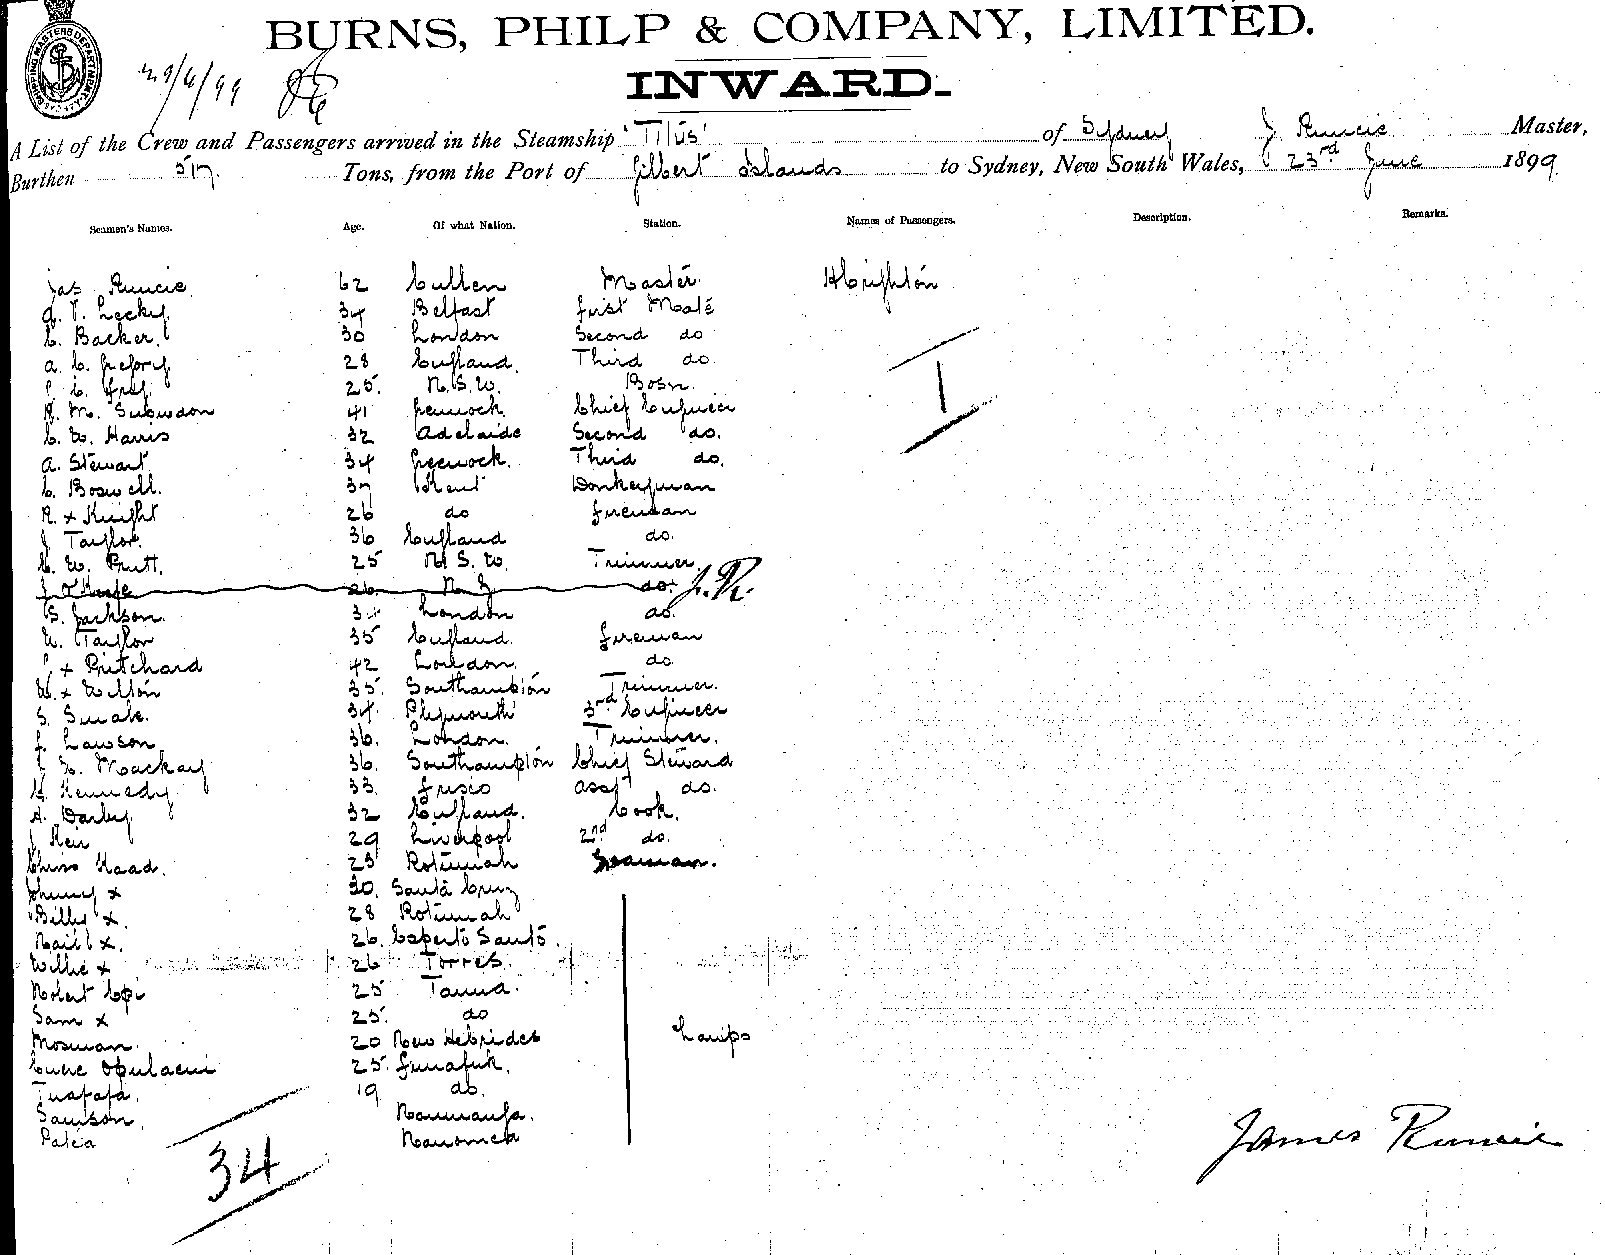 BURNS, PHILP & COMPANY, LIMITED.
SHIPPING MASTERS DEPARTMENT
INWARD.
A List of the Crew and Passengers arrived in the Steamship 'Titus' of Sydney J Runcie Master,
Burthen 517. Tons, from the Port of Gilbert Islands to Sydney, New South Wales, 23rd June 1899
Seamen's Names. Age. Of what Nation. Station. Names of Passengers. Description. Remarks.
Jas Runcie 62 Cullen Master H Crighton
Lecky 34 Belfast First Mate
C. Backer. 30 London Second do
A. C. Gregory 28 England. Third do.
25. N. S. W. Bosn.
R. M. Snowdon 41 Greenock. Chief Engineer
C. W. Harris 32 Adelaide Second do.
A. Stewart 34 Greenock. Third do.
C. Boswell. 37 Kent Donkeyman
R. x Knight 26 do Fireman
J Taylor. 36 England do.
C. W. Pratt. 25 N. S. W. Trimmer
J O'Keefe 26. N. Z. do. J. R.
S. Jackson. London do.
W. Taylor 35 England. Fireman
x Pritchard 42 London. do
W. x Wilson 35. Southampton Trimmer.
S. Smale. 34. Plymouth 3rd Engineer
Lawson 36. London. Trimmer.
Mackay 36. Southampton Chief Steward
Kennedy 33. Frisco asst do.
A. Darby 32 England. Cook.
J. 29 Liverpool 2nd do.
25 Rotumah Seaman.
Johnny x 30. Santa Cruz
Billy x. 28 Rotumah
x. 26. Esperto Santo.
Willie x 26 Torres.
Robert 25 Tanna.
Sam x 25. do
Mosman. 20 New Hebrides Lamps
25. Funafuti.
Tuafafa. 19 do.
Samson. Nanumanga.
Palea Nanomea
1
34
James Runcie